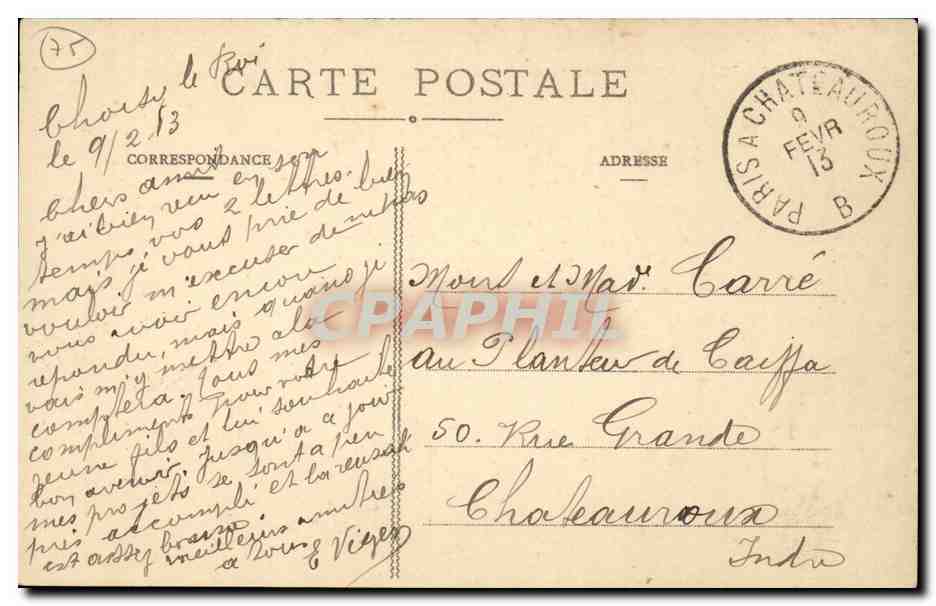 75
CARTE POSTALE
Choisy le Roi
le 9/2 13
CORRESPONDANCE
ADRESSE
PARIS A CHATEAUROUX
9
FEVR
13
B
Chers amis
J'ai bien reçu en son
temps vos 2 lettres.
mais je vous prie de bien
vouloir m'excuser de ne pas
vous avoir encore
repondu, mais quand je
vais m'y mettre a la
complets. Tous mes
compliments pour votre
jeune fils et lui souhaite
bon avenir. Jusqu'a a jour
mes projets se sont a peu
près accompli et la reussite
est assez bonne
meilleurs amitiés
a tous E Viger
Mons et Made Carré
au Planteur de Caiffa
50. Rue Grande
Chateauroux
Indre
CPAPHIL